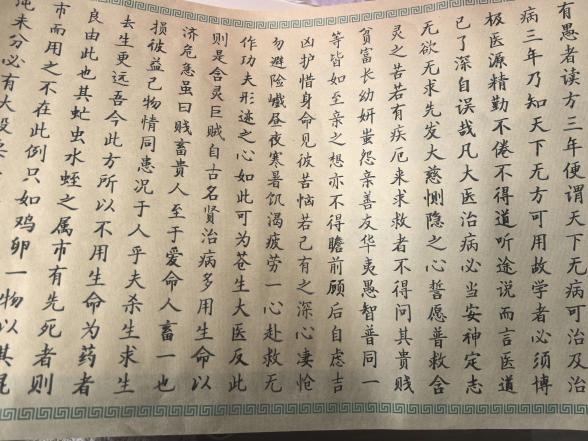 有愚者读方三年便谓天下无病可治及治
病三年乃知天下无方可用故学者必须博
极医源精勤不倦不得道听途说而言医道
已了深自误哉凡大医治病必当安神定志
无欲无求先发大慈恻隐之心誓愿普救含
灵之苦若有疾厄来求救者不得问其贵贱
贫富长幼妍蚩怨亲善友华夷愚智普同一
等皆如至亲之想亦不得瞻前顾后自虑吉
凶护惜身命见彼苦恼若己有之深心凄怆
勿避险巇昼夜寒暑饥渴疲劳一心赴救无
作功夫形迹之心如此可为苍生大医反此
则是含灵巨贼自古名贤治病多用生命以
济危急虽曰贱畜贵人至于爱命人畜一也
损彼益己物情同患况于人乎夫杀生求生
去生更远吾今此方所以不用生命为药者
良由此也其虻虫水蛭之属市有先死者则
市而用之不在此例只如鸡卵一物以其
沌未分必有大段